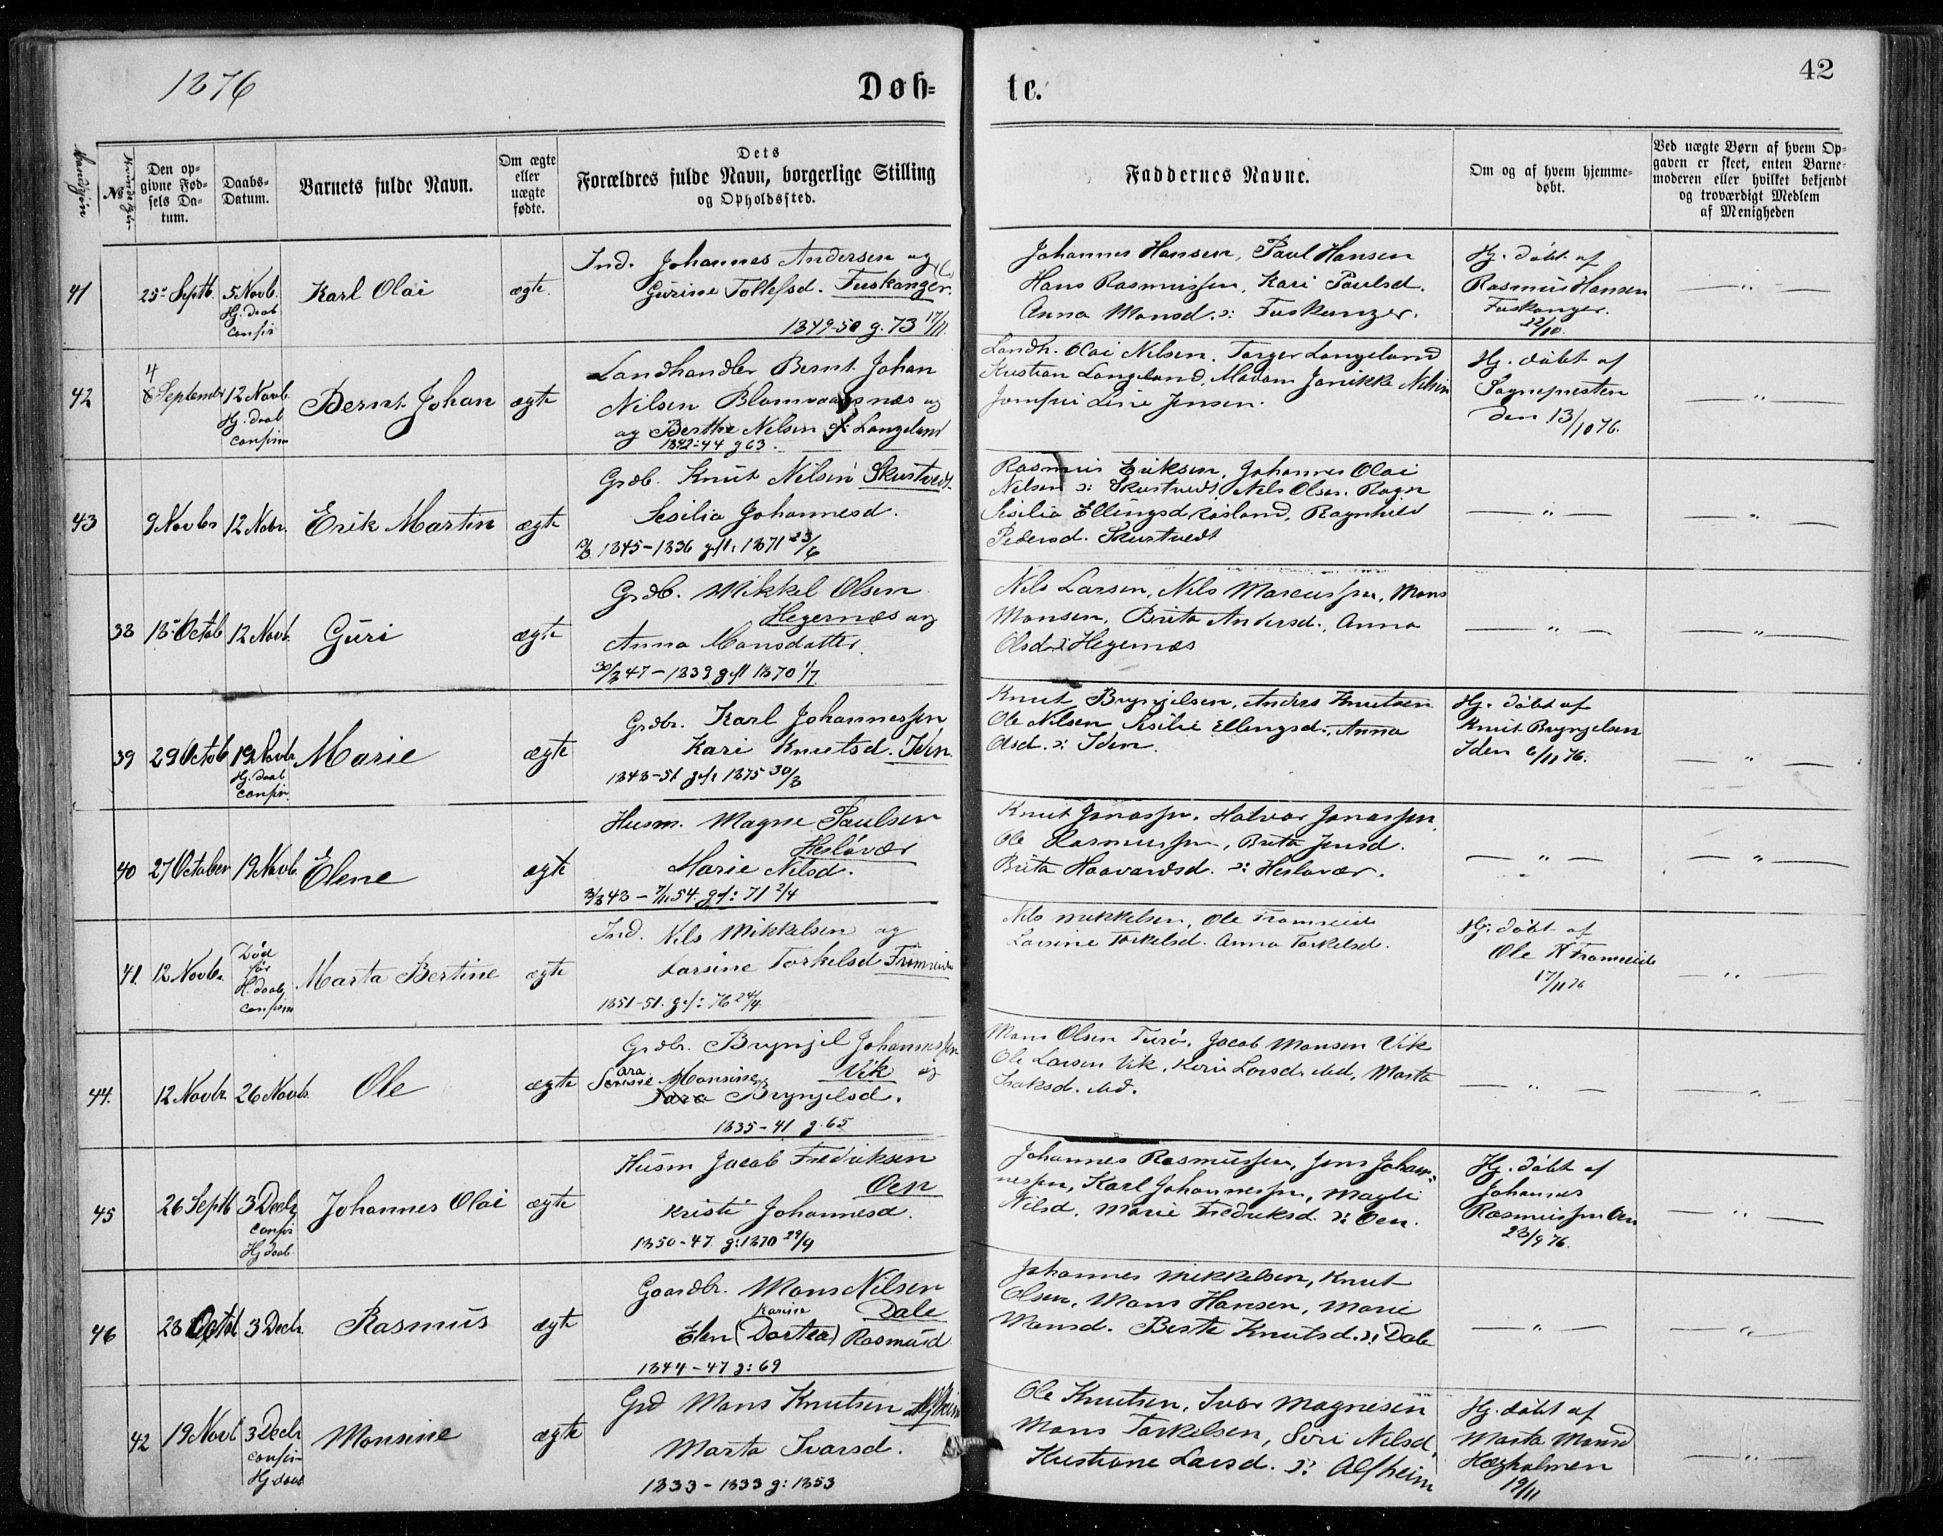 1876
Døb-
te.
42
Mandkjøn
№
Kvindekjøn
Den op-
givne Fød-
sels Da-
tum.
Daabs-
Datum.
Barnets fulde Navn.
Om ægte
eller
uægte
fødte.
Dets
Forældres fulde Navn, borgerlige Stilling
og Opholdssted.
Faddernes Navne.
Om og af hvem hjemme-
døbt.
Ved uægte Børn af hvem Op-
gaven er skeet, enten Barne-
moderen eller hvilket bekjendt
og troværdigt Medlem
af Menigheden
41
25 Septb.
5 Novb.
Hj. daab
confir
Karl Olai
ægte
Ind. Johannes Andersen og
Gurine Tollefsd. Fuskanger.
1849-50 g. 73 17/11
Johannes Hansen, Paul Hansen
Hans Rasmussen, Kari Paulsd.
Anna Monsd. ɔ: Fuskanger.
Hj. døbt af
Rasmus Hansen
Fuskanger.
22/10.
42
4
September
12 Novb.
Hj. daab
confirm
Bernt Johan
ægte
Landhandler Bernt Johan
Nilsen Blomvaagnæs og
og Berthe Nilsen f: Langeland
1842-44 g 63.
Landh. Olai Nilsen, Torger Langeland
Kristian Langeland, Madam Janikke Nilsen
Jomfru Line Jensen.
Hj. døbt af
Sognepresten
den 13/10 76.
43
9 Novbr
12 Nobr.
Erik Martin
ægte
Grdb. Knut Nilsen Skustvedt
Sesilia Johannesd.
1845-1836 gft: 1871 23/6
Rasmus Eriksen, Johannes Olai
Nilsen ɔ: Skustvedt, Nils Olsen, Ragn
Sisilia Ellingsd Røsland, Ragnhild
Pedersd. Skustvedt
38
18 Octob
12 Novb.
Guri
ægte
Grdb. Mikkel Olsen
Hegernæs og
Anna Monsdatter.
30/3 47 - 1839 gft 1870 1/7
Nils Larsen, Nils Marcussen, Mons
Monsen, Brita Andersd., Anna
Olsd ɔ: Hegernæs
39
29 Octob
19 Novbr
Hj. daab
confir.
Marie
ægte
Grdbr. Karl Johannessen
Kari Knutsd. Iden
1848-51 gft 1875 30/3
Knut Brynjelsen, Anders Knutsen
Ole Nilsen Sisilie Ellingsd., Anna
Olsd. ɔ: Iden.
Hj. døbt af
Knut Brynjelsen
Iden 6/11 76.
40
27 October
19 Novb.
Elene
ægte
Husm. Magne Paulsen
Hesløvær
Marie Nilsd.
3/3 43 - 7/11 54. gf: 71 2/4
Knut Jonassen, Halvor Jonassen,
Ole Rasmussen, Brita Jensd.
Brita Haavardsd. ɔ: Hesløvær.
41.
12 Novbr.
Død
før
H. daab
confirm
Marta Bertine
ægte
Ind. Nils Mikkelsen og
Larsine Torkelsd Fromreide
1851-51. gf: 76 24/4
Nils Mikkelsen, Ole Fromreide
Larsine Torkelsd. Anna Torkelsd.
Hj. døbt af
Ole N Fromreide
17/11 76
44.
12 Novbr.
26 Novb.
Ole
ægte
Grdbr. Brynjel Johannessen
Monsine Vik og
Brynjelsd.
1835-41 g. 65
Mons Olsen Turø, Jacob Monsen Vik
Ole Larsen Vik, Kari Larsd. ibd, Marta
Isaksd. ibd.
45
26 Septb
3 Decbr
confir
Hj daab
Johannes Olai
ægte
Husm Jacob Fredriksen
Oen
Kristi Johannesd.
1850-47 g: 1870 29/9
Johannes Rasmussen, Jens Johan-
nessen, Karl Johannessen, Magli
Nilsd, Marie Fredriksd. ɔ: Oen.
Hj. døbt af
Johannes
Rasmussen Oen
28/9 76.
46
28 Octob
3 Decbr.
Rasmus
ægte
Gaardbr. Mons Nilsen
Karine Dale
Elen (Dortea) Rasmusd
1844-47 g: 69
Johannes Mikkelsen, Knut
Olsen, Mons Hansen, Marie
Monsd. Berte Knutsd. ɔ: Dale
42
19 Novb
3 Decbr
confir-
Hj daab
Monsine
ægte
Grd Mons Knutsen Alfheim
Marta Ivarsd.
1833-1833 g: 1853
Ole Knutsen, Ivar Magnesen
Mons Torkelsen, Siri Nilsd,
Kristiane Larsd. ɔ: Alfheim
Hj. døbt af
Marta Monsd
Hægholmen
19/11